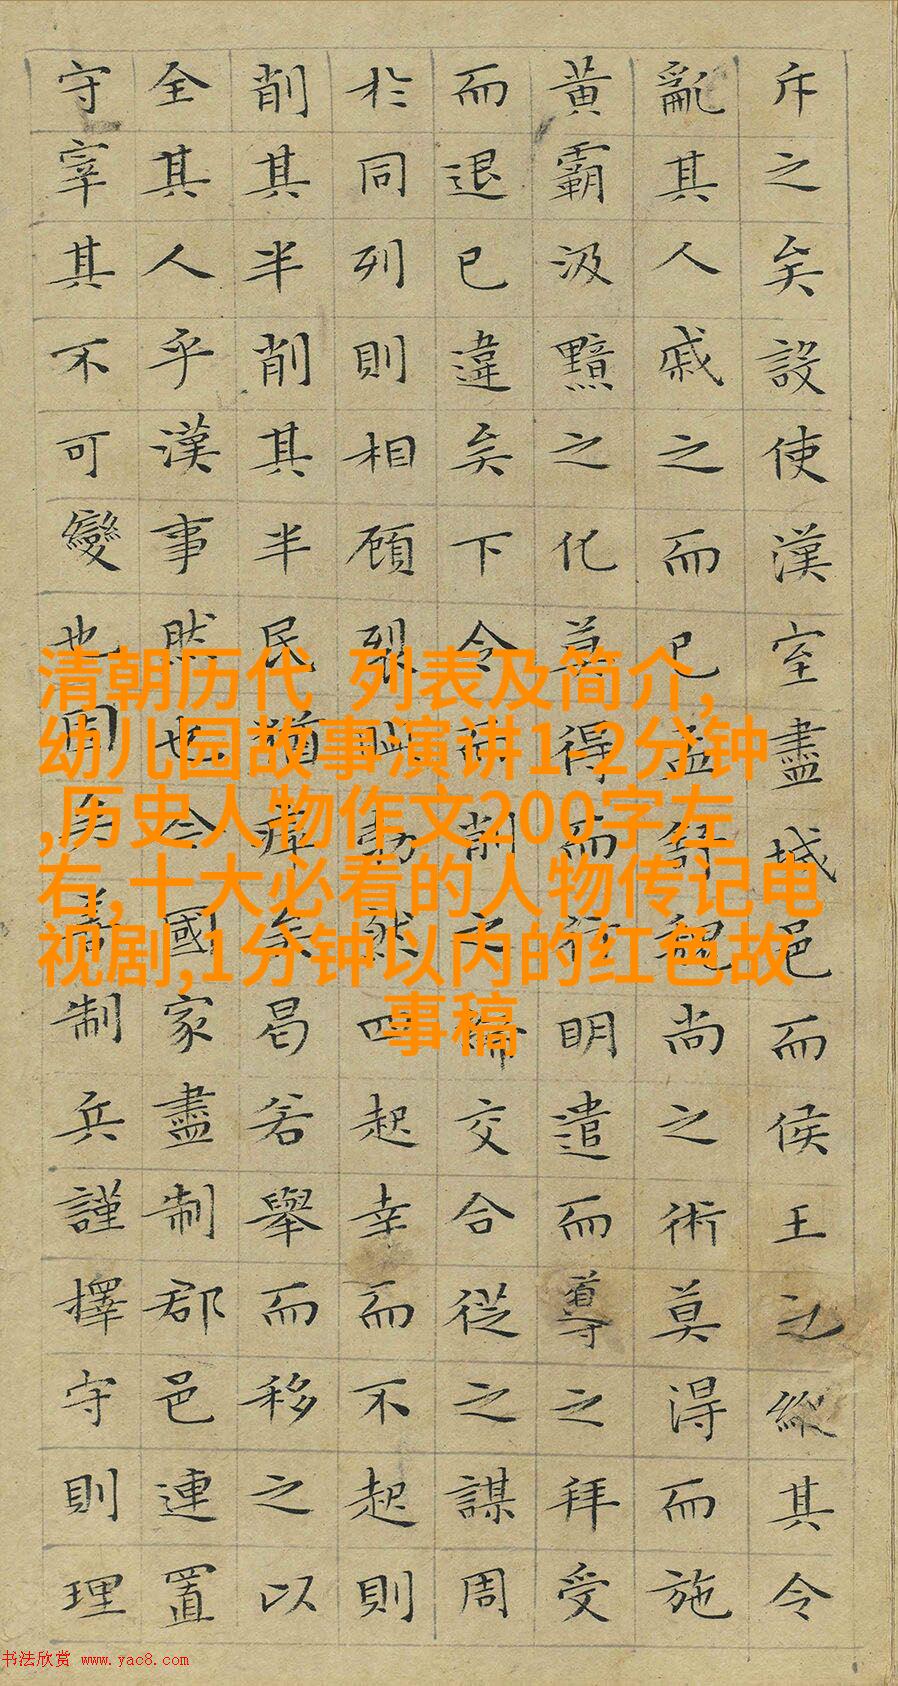 斥之矣設使漢室盡城邑而侯王之縱其令
亂其人戚之而已孟舒魏尚之術莫得而施
黃霸汲黯之化莫得而行明遣而導之拜受
而退已違矣下令而削之締交合從之謀周
於同列則相顧裂眦勃然四起幸而不起則
削其半削其半民猶瘁矣曷若舉而移之以
全其人乎漢事然也今國家盡制郡邑連置
守宰其不可變也固矣善制兵謹擇守則理
清朝历代 列表及简介,
幼儿园故事演讲1-2分钟
,历史人物作文200字左
右,十大必看的人物传记电
视剧,1分钟以内的红色故
事稿
书法欣赏 www.yac8.com